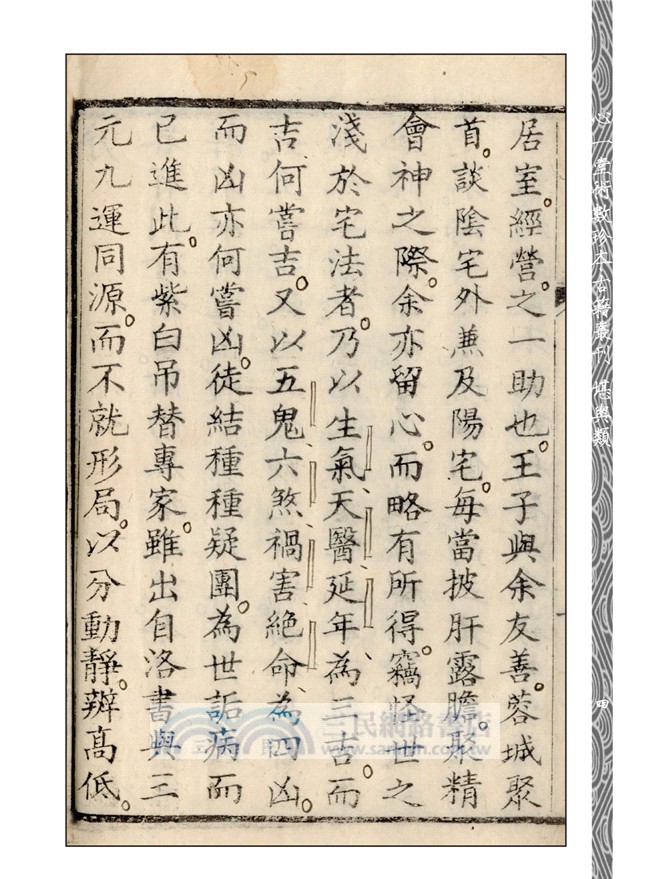 居室。經營。之一助也。王子與余友善。蓉城聚
首。談陰宅外兼及陽宅。每當披肝露膽。聚精
會神之際。余亦留心。而略有所得。竊怪世之
淺於宅法者。乃以生氣、天醫、延年、為三吉。而
吉何嘗吉。又以五鬼、六煞、禍害、絕命、為四凶。
而凶亦何嘗凶。徒結種種疑團。為世詬病而
已進此。有紫白吊替專家。雖出自洛書與三
元九運同源。而不就形局。以分動靜。辨高低。
心一堂術數珍本古籍叢刊 堪輿類
四
三民網路書店